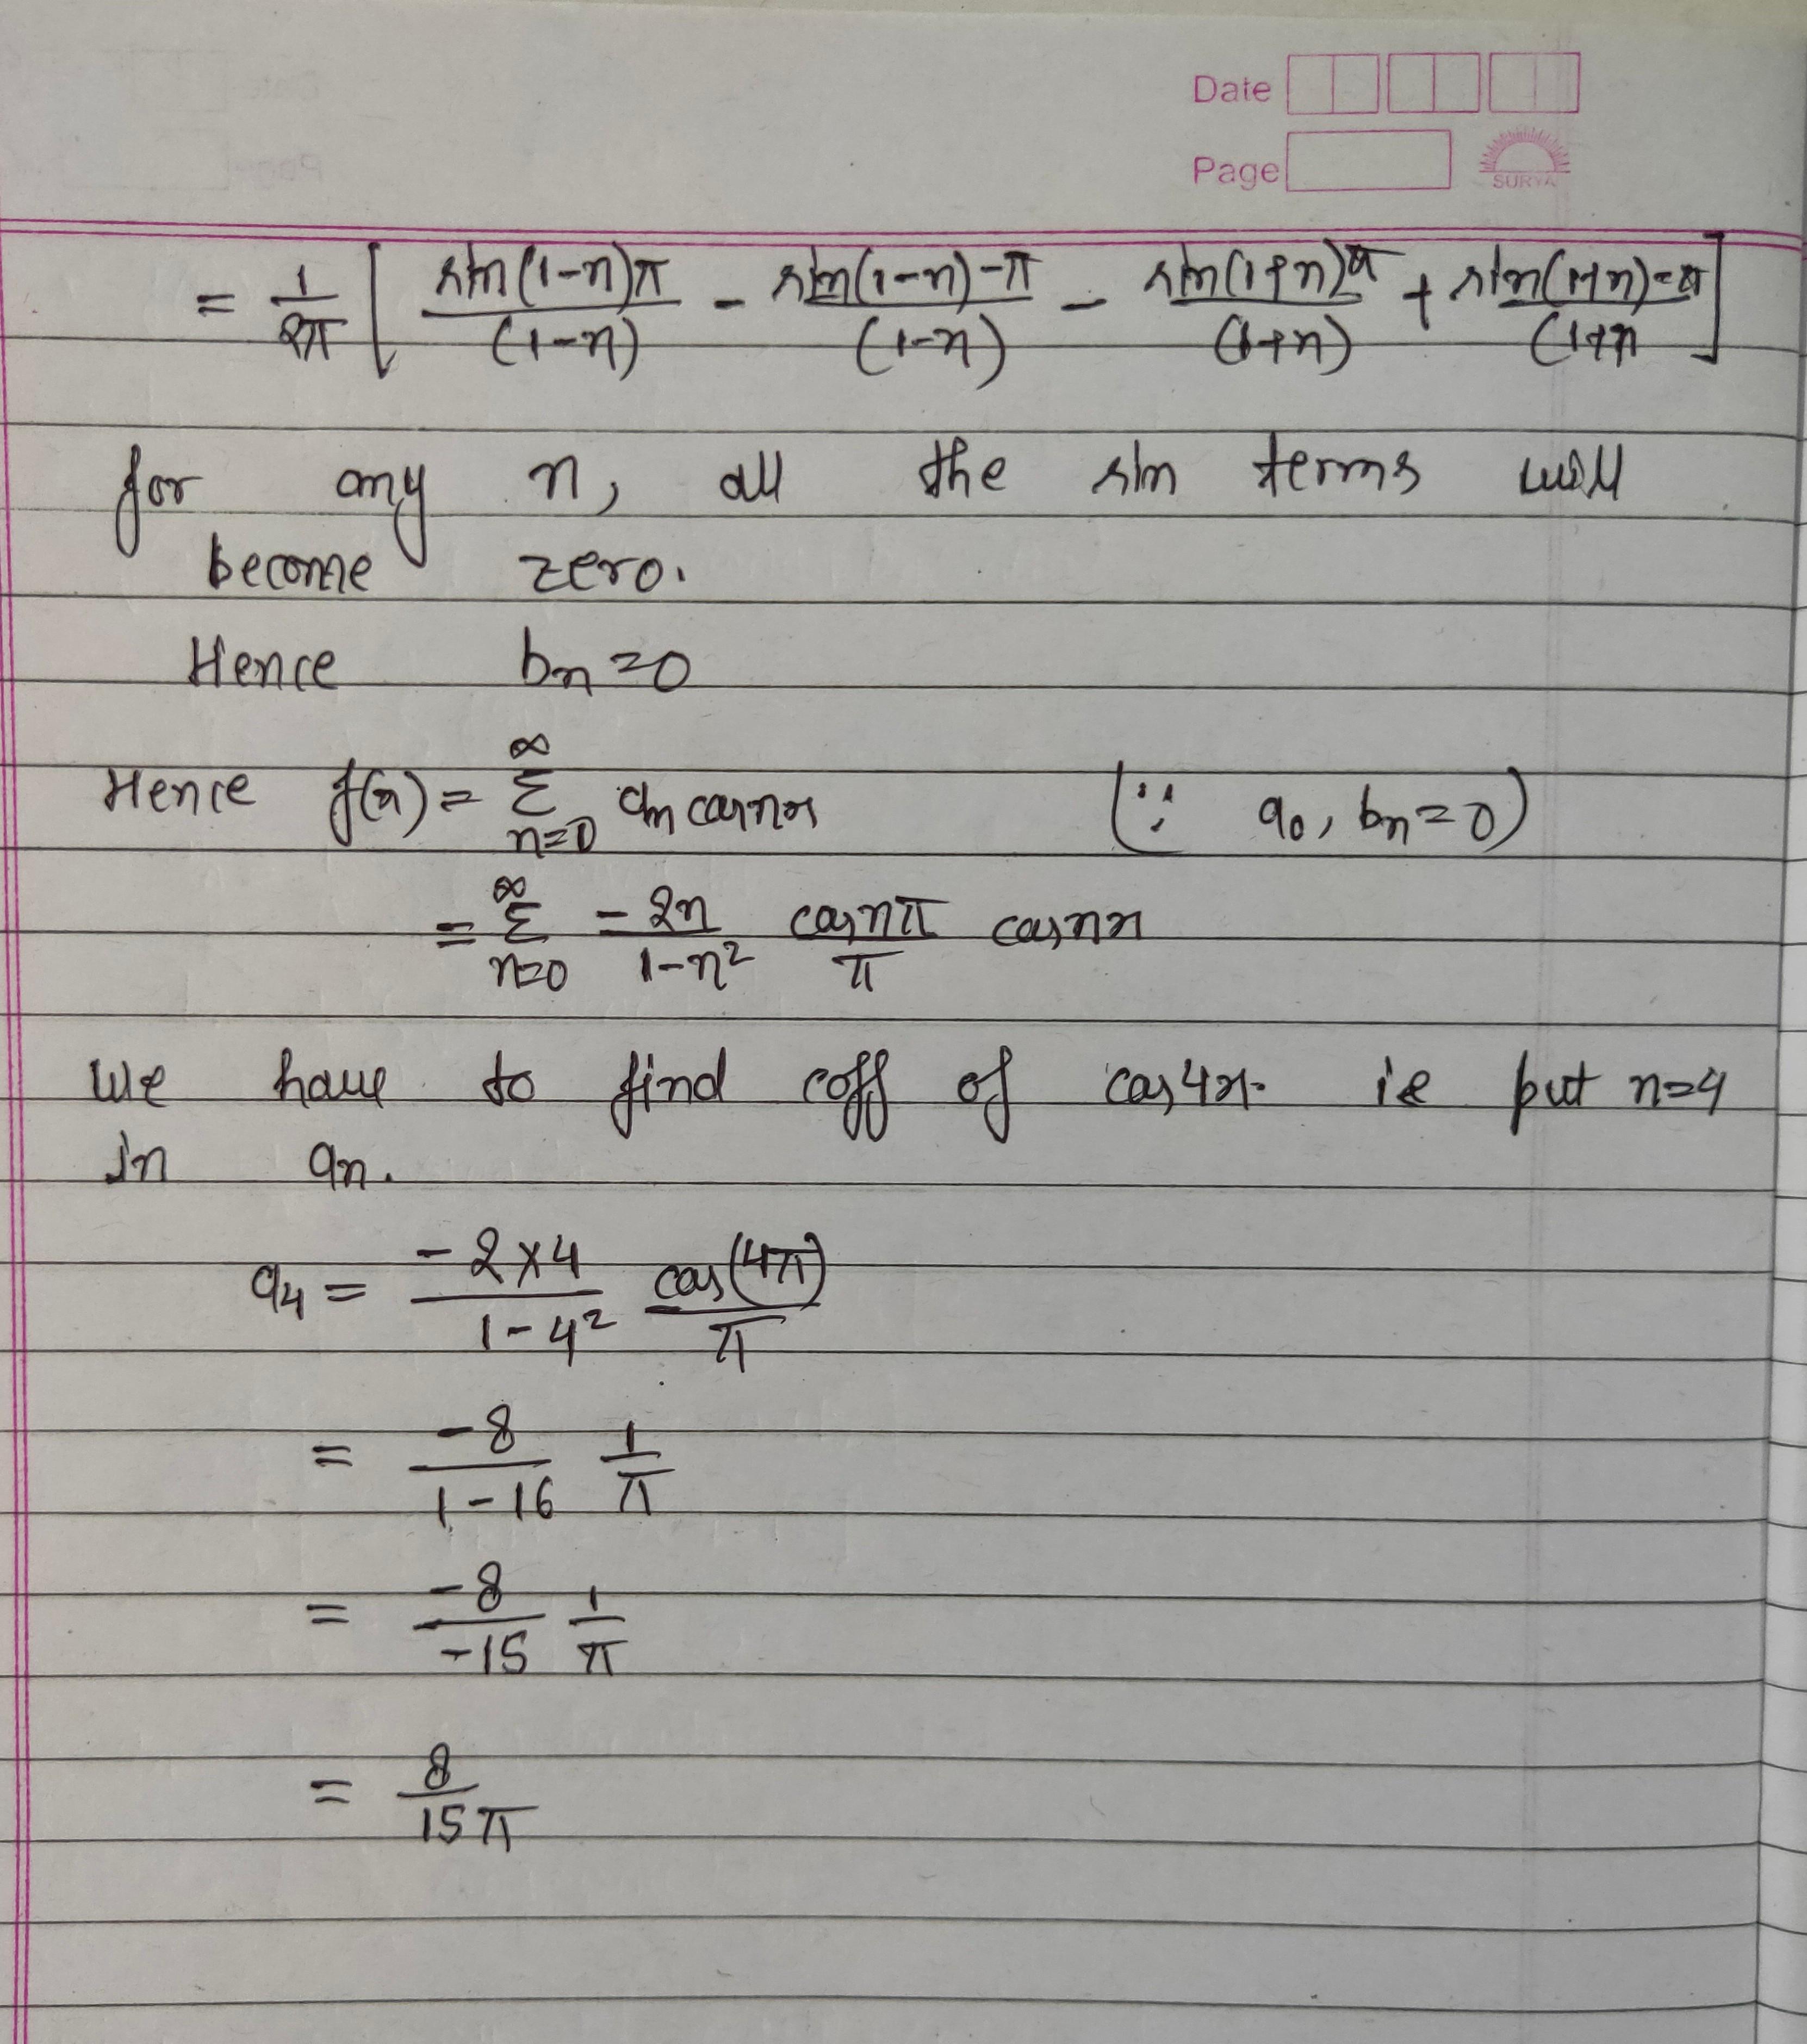 Date
Page
SURYA
= 1/2π [ sin(1-n)π/(1-n) - sin(1-n)-π/(1-n) - sin(1+n)π/(1+n) + sin(1+n)-π/(1+n ]
for any n, all the sin terms will
become zero.
Hence bn=0
Hence f(x) = ∞Σn=0 an cosnx (∵ a0, bn=0)
= ∞Σn=0 -2n/1-n² cosnπ/π cosnx
we have to find coff of cos4x. ie put n=4
in an.
a4 = -2×4/1-4² cos(4π)/π
= -8/1-16 1/π
= -8/-15 1/π
= 8/15π